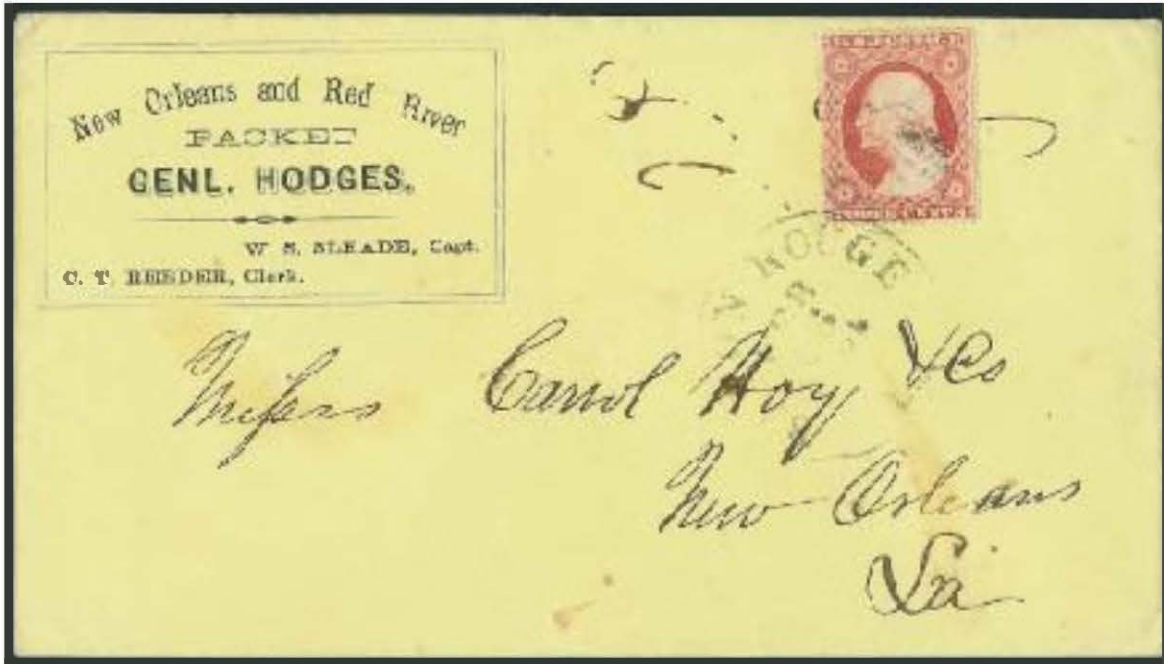 New Orleans and Red River
PACKET
GENL. HODGES.
W. S. SLEADE, Capt.
C. T. REEDER, Clerk.
ROUGE
Messrs Carrol Hoy & Co
New Orleans
La